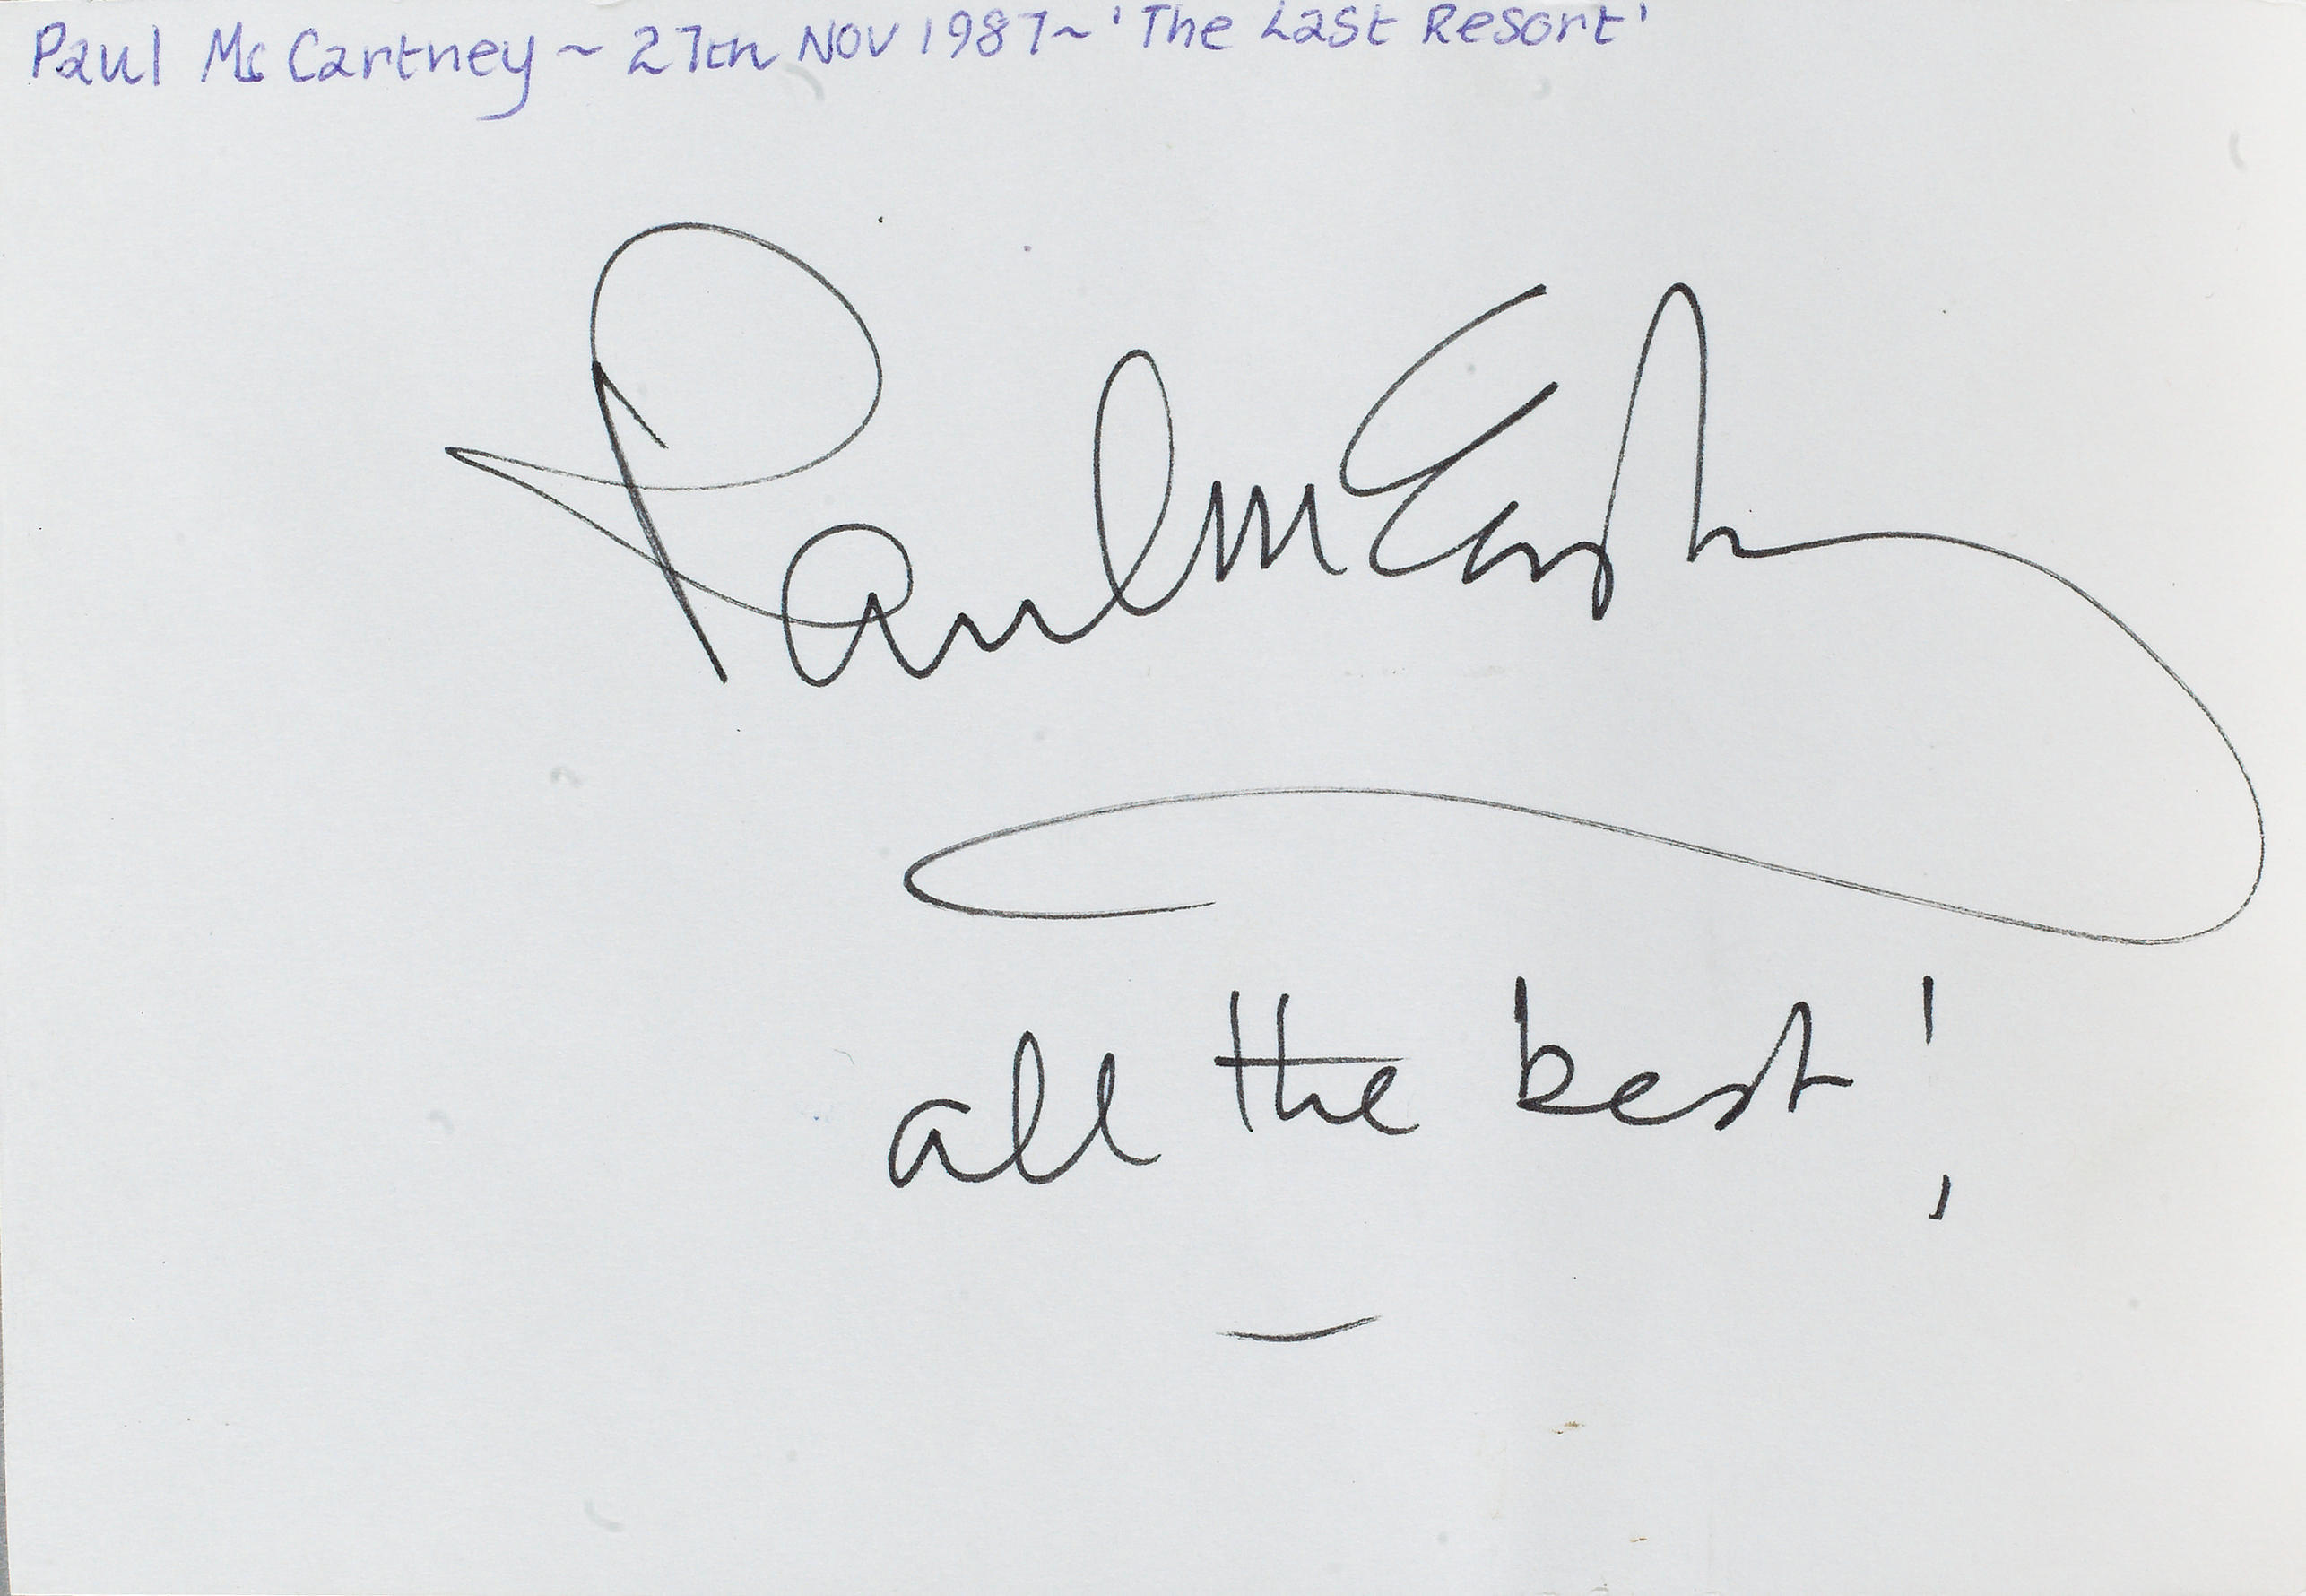 Paul McCartney ~ 27th NOV 1987 ~ 'The Last Resort'
Paul McCartney
all the best!